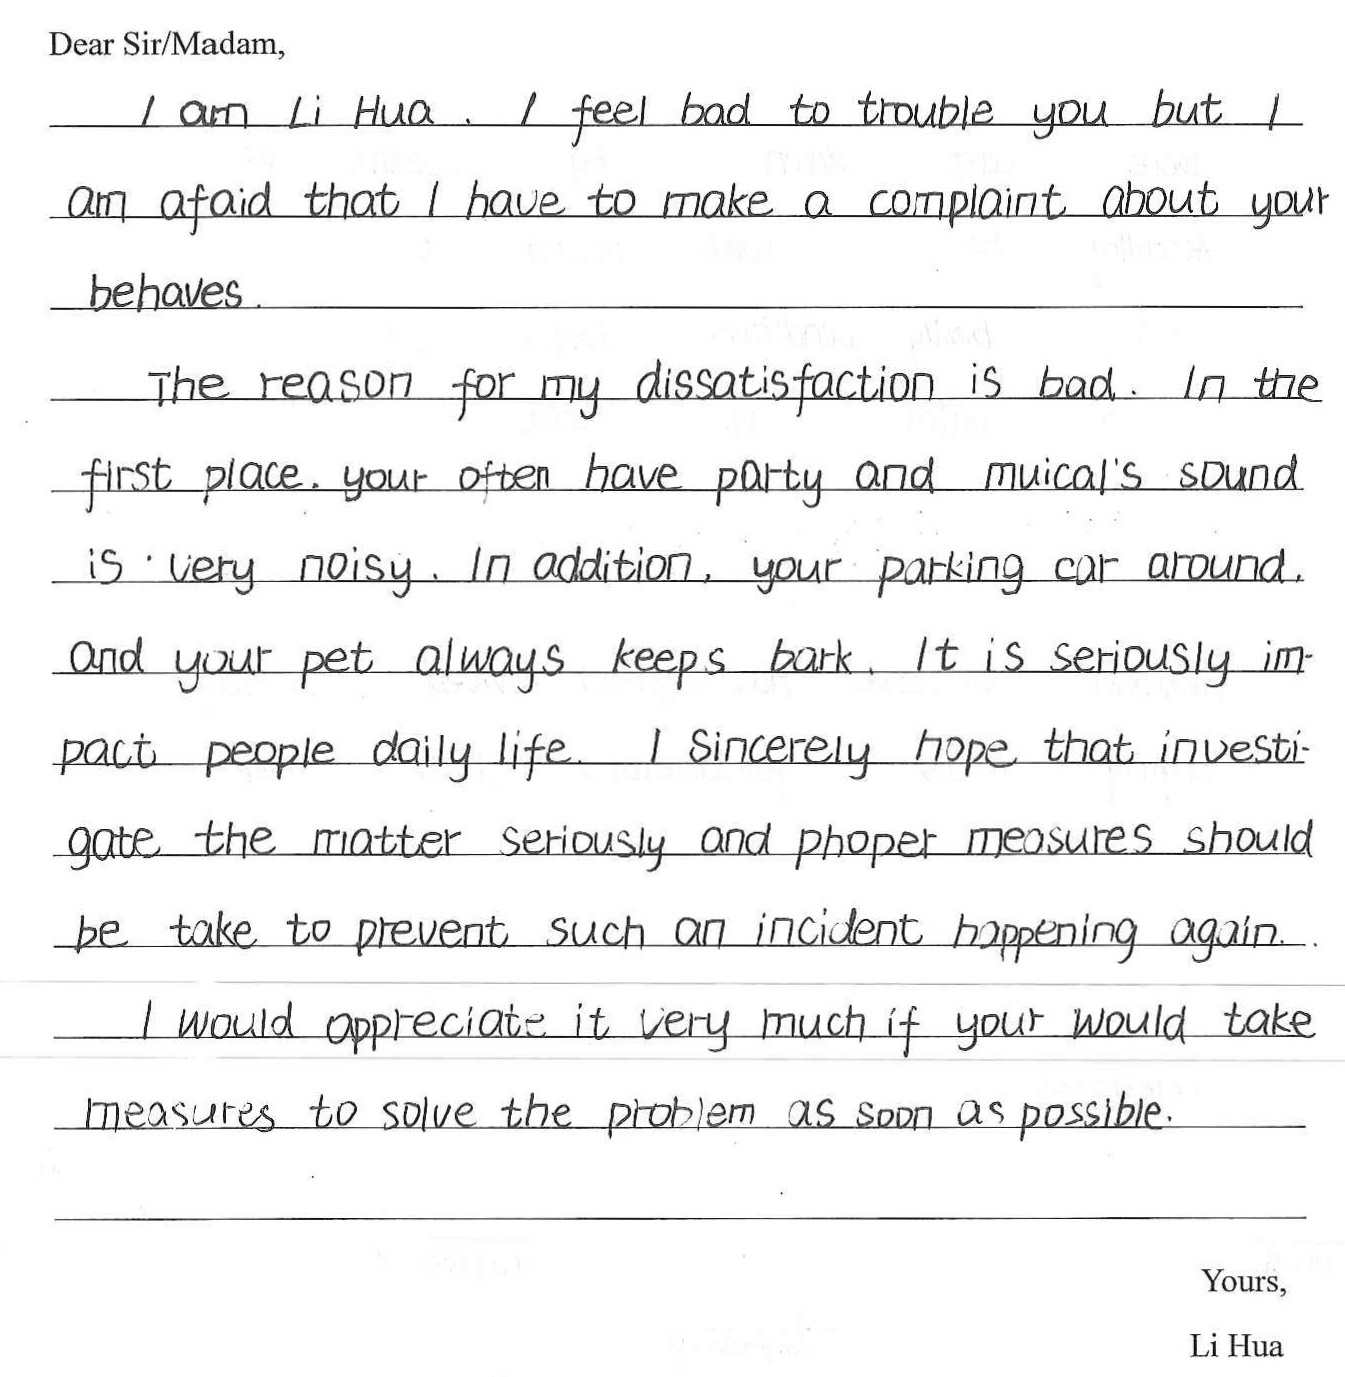 Dear Sir/Madam,
I am Li Hua. I feel bad to trouble you but I
am afaid that I have to make a complaint about your
behaves.
The reason for my dissatisfaction is bad. In the
first place. your often have party and muical's sound
is very noisy. In addition, your parking car around.
and your pet always keeps bark. It is seriously im-
pact people daily life. I sincerely hope that investi-
gate the matter seriously and phoper measures should
be take to prevent such an incident happening again.
I would appreciate it very much if your would take
measures to solve the problem as soon as possible.
Yours,
Li Hua